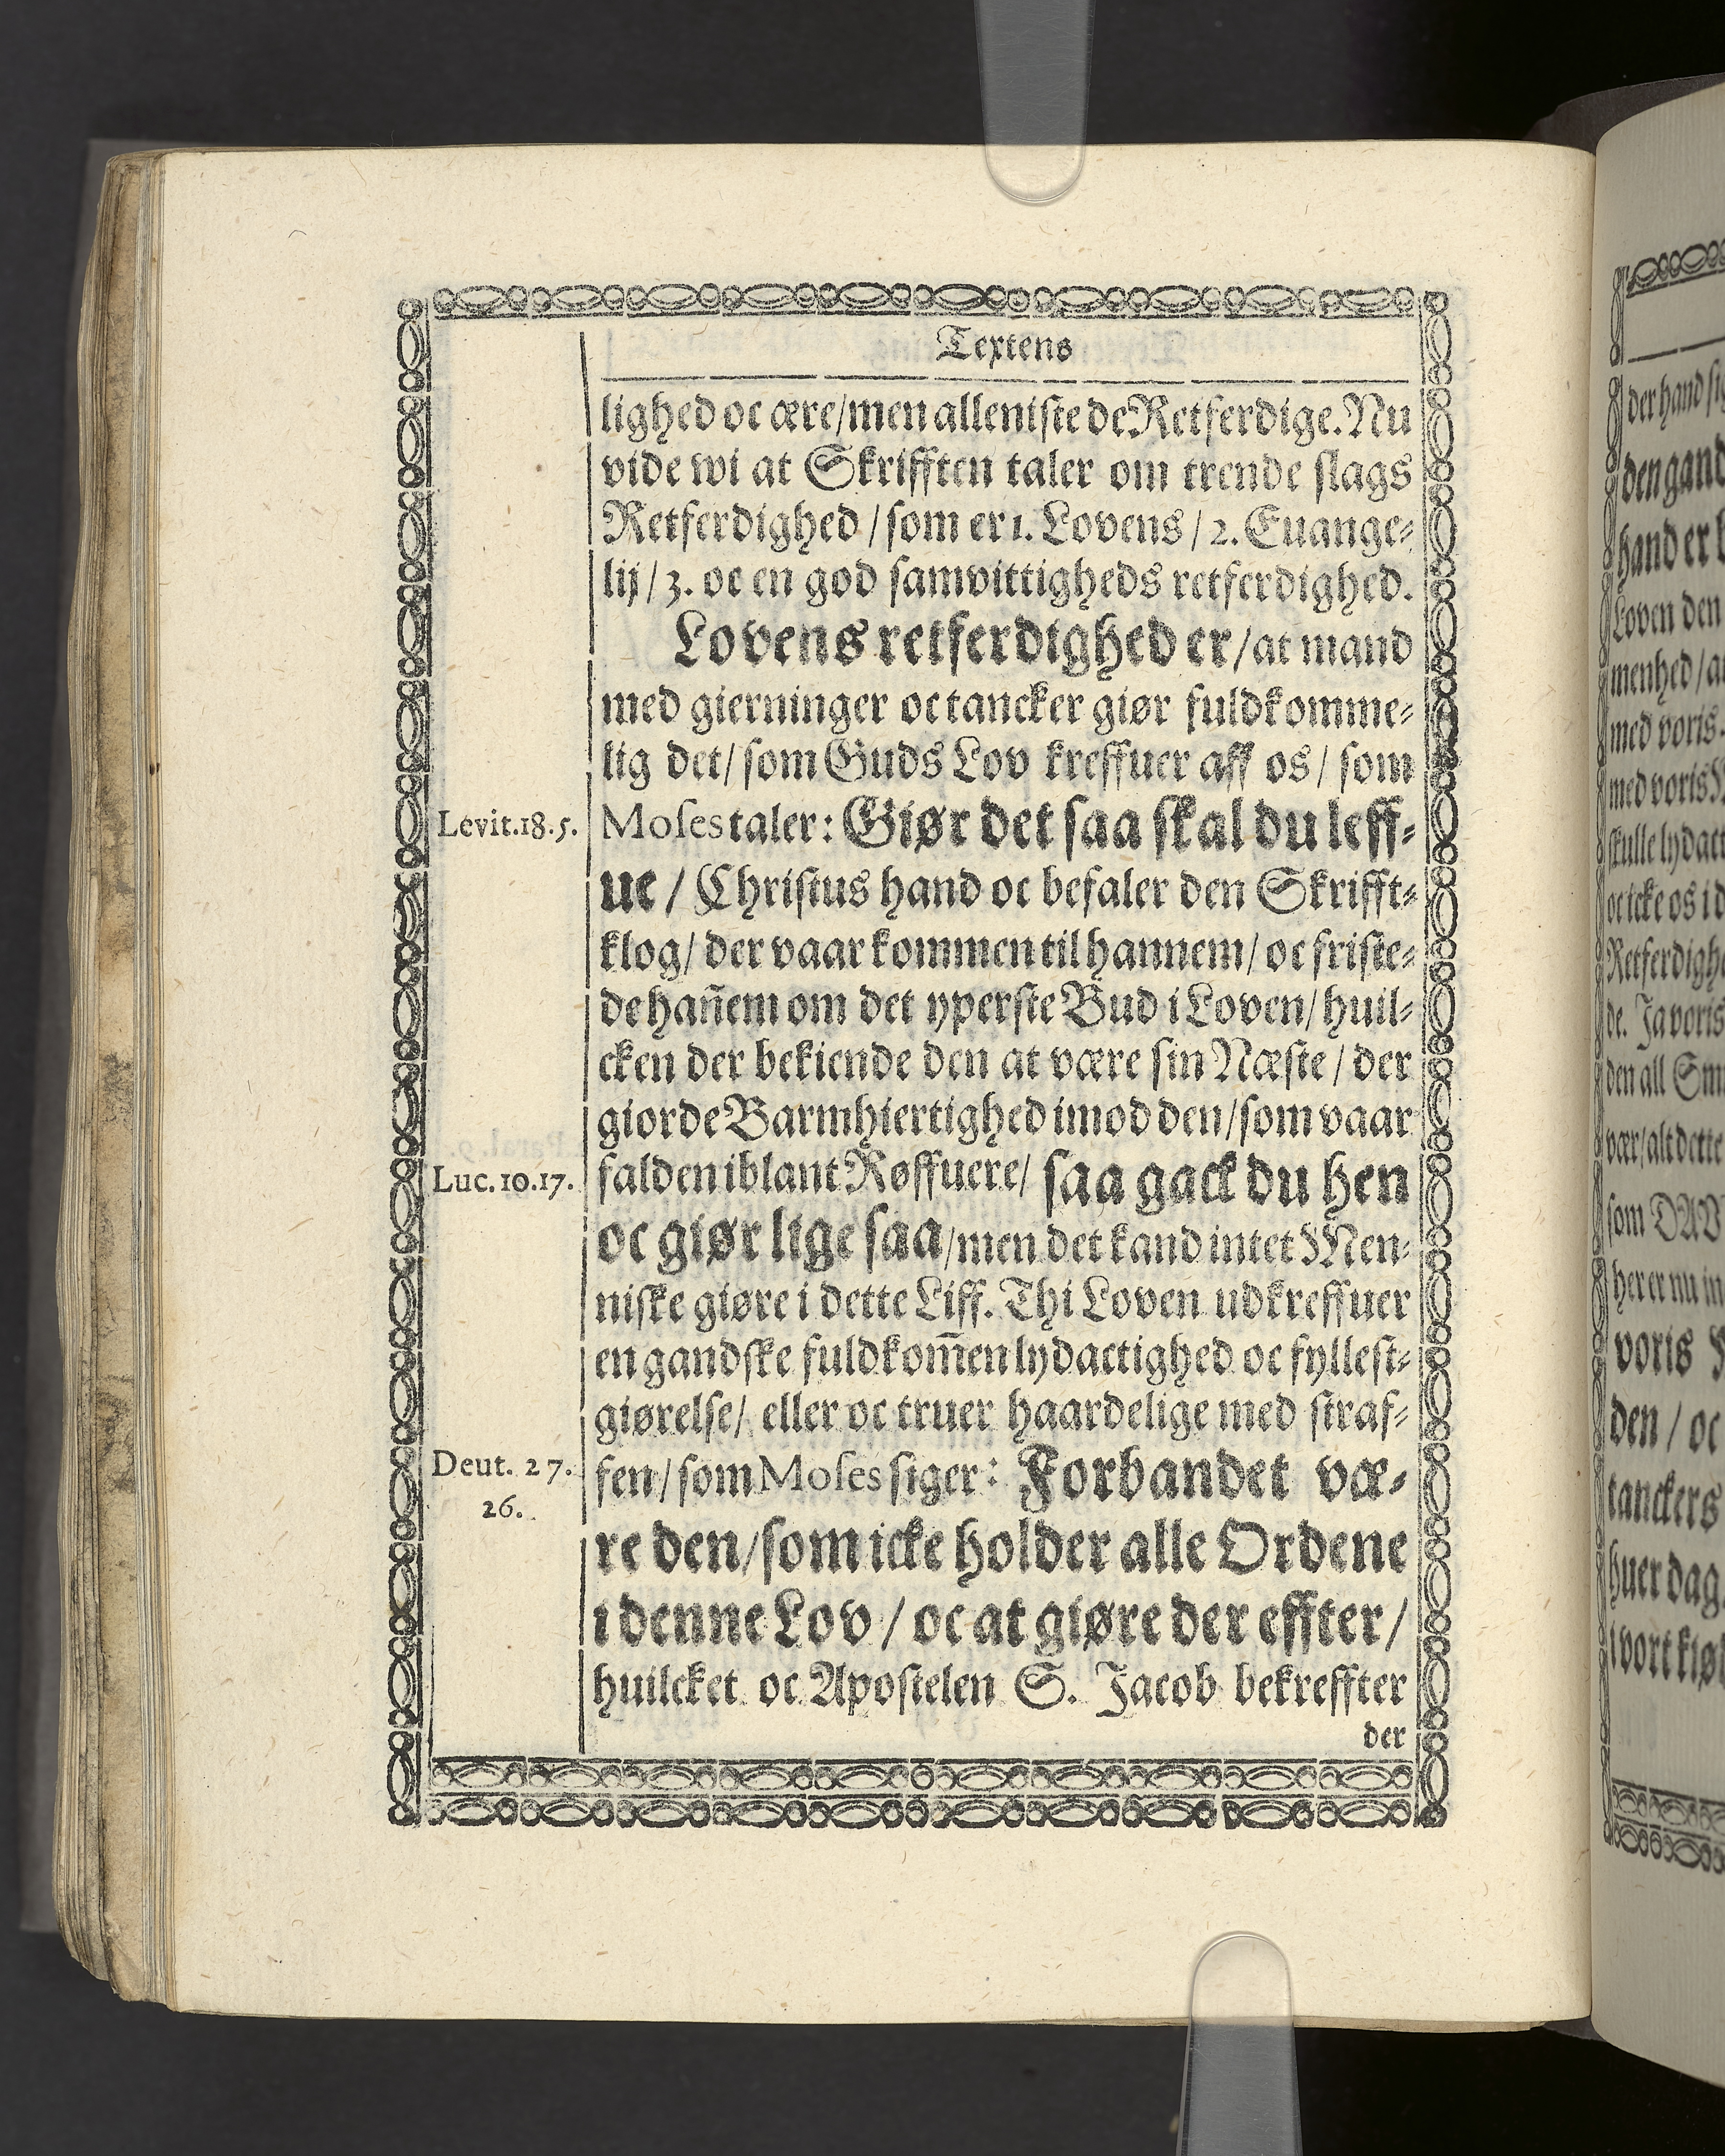 Textens
lighed oc ære/ men alleniste de Retferdige. Nu
vide wi at Skrifften taler om trende slags
Retferdighed / som er 1. Lovens / 2. Euange-
lij / 3. oc en god samvittigheds retferdighed.
Lovens retferdighed er/ at mand
med gierninger oc tancker giør fuldkomme-
lig det/ som Guds Lov kreffuer aff os / som
Levit.18.5.
Moses taler: Giør det saa skal du leff-
ue / Christus hand oc befaler den Skrifft-
klog/ der vaar kommen til hannem/ oc friste-
de hañem om det yperste Bud i Loven/ huil-
cken der bekiende den at være sin Næste / der
giorde Barmhiertighed imod den/ som vaar
Luc.10.17.
falden iblant Røffuere/ saa gack du hen
oc giør lige saa/ men det kand intet Men-
niske giøre i dette Liff. Thi Loven udkreffuer
en gandske fuldkom̃en lydactighed oc fyllest-
giørelse/ eller oc truer haardelige med straf-
Deut. 27.
26.
fen / som Moses siger: Forbandet væ-
re den/ som icke holder alle Ordene
i denne Lov / oc at giøre der effter /
huilcket oc Apostelen S. Jacob bekreffter
der
der hand
den gand
hand er
Loven den
menhed / a
med voris
med voris
skulle lydact
oc icke os i d
Retferdigh
de. Ja voris
den all
vær/ alt dette
som DAV
her er nu in
voris
den / oc
tanckers
huer dag